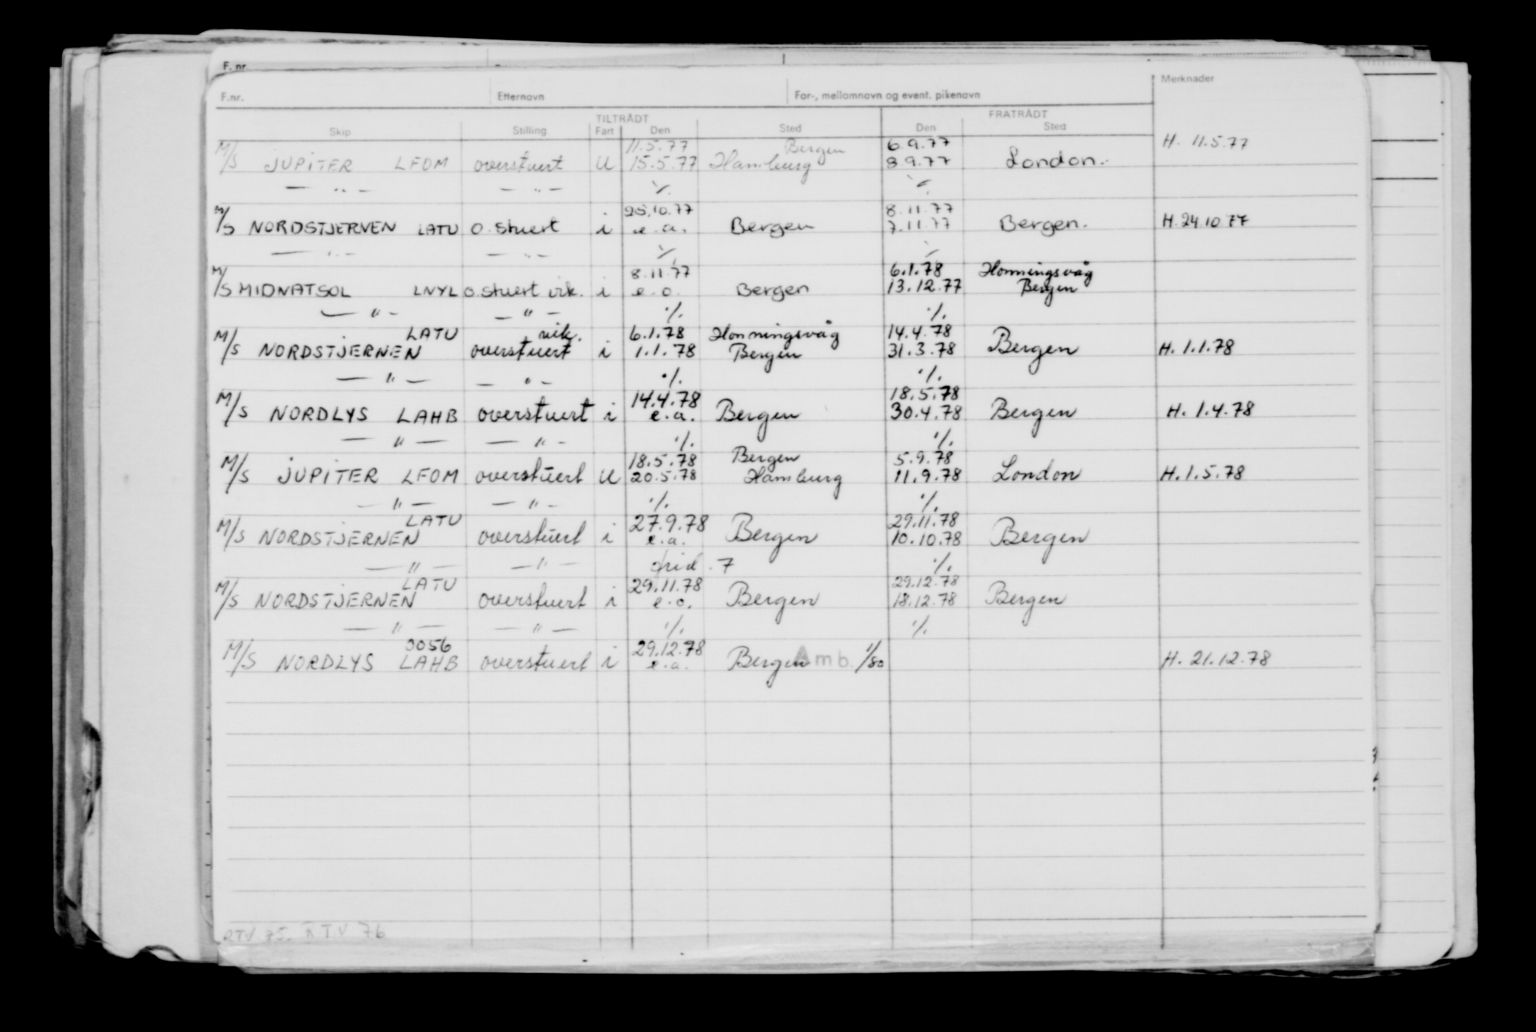 F. nr.
F.nr. Etternavn For-, mellomnavn og event. pikenavn Merknader
TILTRÅDT FRATRÅDT
Skip Stilling Fart Den Sted Den Sted
11.5.77 Bergen 6.9.77 H. 11.5.77
M/S JUPITER LFOM overstuert U 15.5.77 Hamburg 8.9.77 London.
— " — — " — ./. ./.
25.10.77 8.11.77
M/S NORDSTJERNEN LATU O.stuert i e.a. Bergen 7.11.77 Bergen. H. 24.10.77
— " — — " — ./. ./.
8.11.77 6.1.78 Honningsvåg
M/S MIDNATSOL LNYL o.stuert vik. i e.o. Bergen 13.12.77 Bergen
— " — — " — ./. ./.
LATU vik. 6.1.78 Honningsvåg 14.4.78
M/S NORDSTJERNEN overstuert i 1.1.78 Bergen 31.3.78 Bergen H. 1.1.78
— " — — " — ./. ./.
14.4.78 18.5.78
M/S NORDLYS LAHB overstuert i e.a. Bergen 30.4.78 Bergen H. 1.4.78
— " — — " — ./. ./.
18.5.78 Bergen 5.9.78
M/S JUPITER LFOM overstuert U 20.5.78 Hamburg 11.9.78 London H. 1.5.78
— " — — " — ./. ./.
LATU 27.9.78 29.11.78
M/S NORDSTJERNEN overstuert i e.a. Bergen 10.10.78 Bergen
— " — — " — 7 ./.
LATU 29.11.78 29.12.78
M/S NORDSTJERNEN overstuert i e.o. Bergen 18.12.78 Bergen
— " — — " — ./. ./.
0056 29.12.78
M/S NORDLYS LAHB overstuert i e.a. Bergen Amb. 1/80 H. 21.12.78
RTV 75. RTV 76